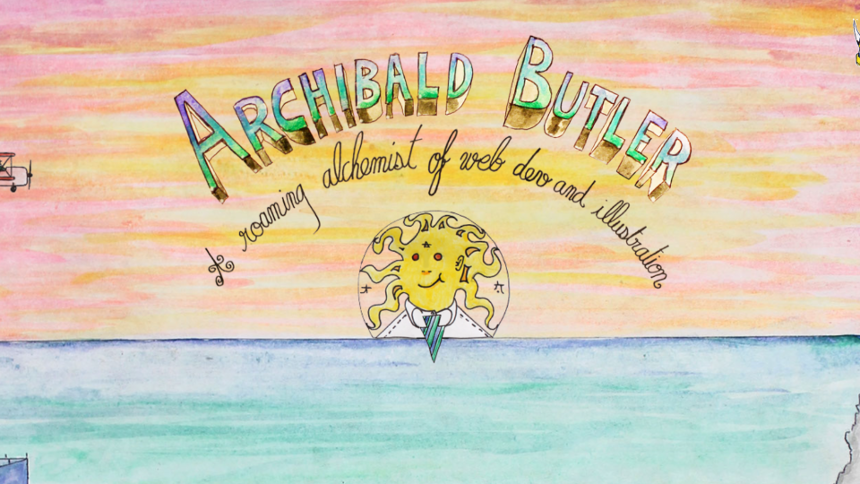 ARCHIBALD BUTLER
A roaming alchemist of web dev and illustration